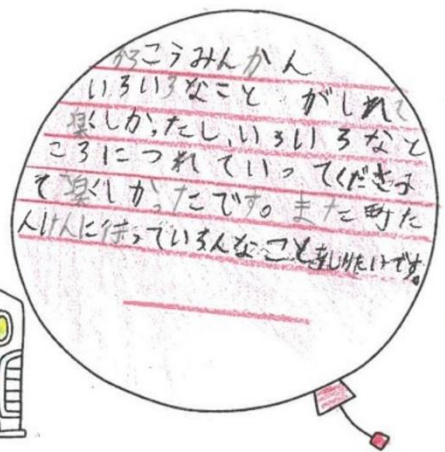 こうみんかん
いろいろなこと がしれて
楽しかったし、いろいろなと
ころにつれていってくださっ
て楽しかったです。また町た
んけんに行っていろんなこと楽しりたいです。